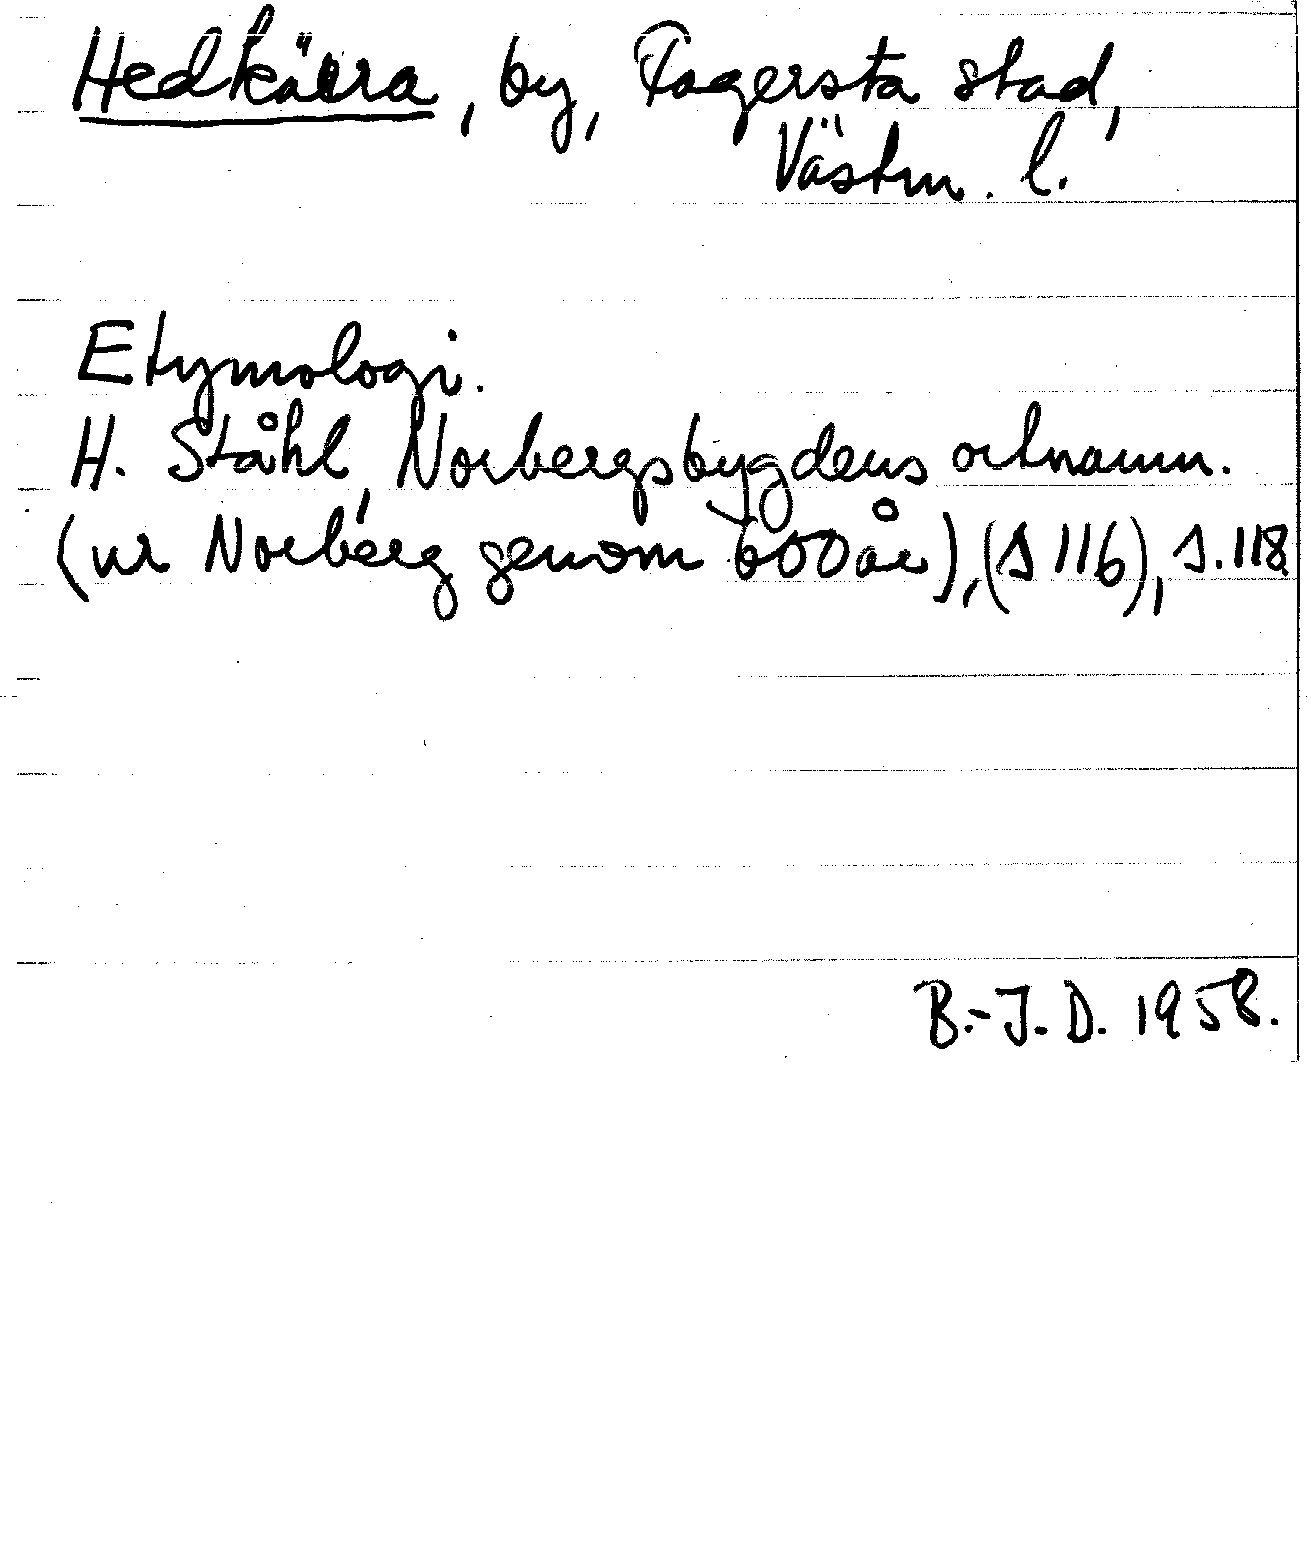 Hedkärra, by, Fagersta stad,
Västm. l.
Etymologi.
H. Ståhl, Norbergsbygdens ortnamn.
(ur Norberg genom 600 år), (s 116), s. 118
B.-J. D. 1958.